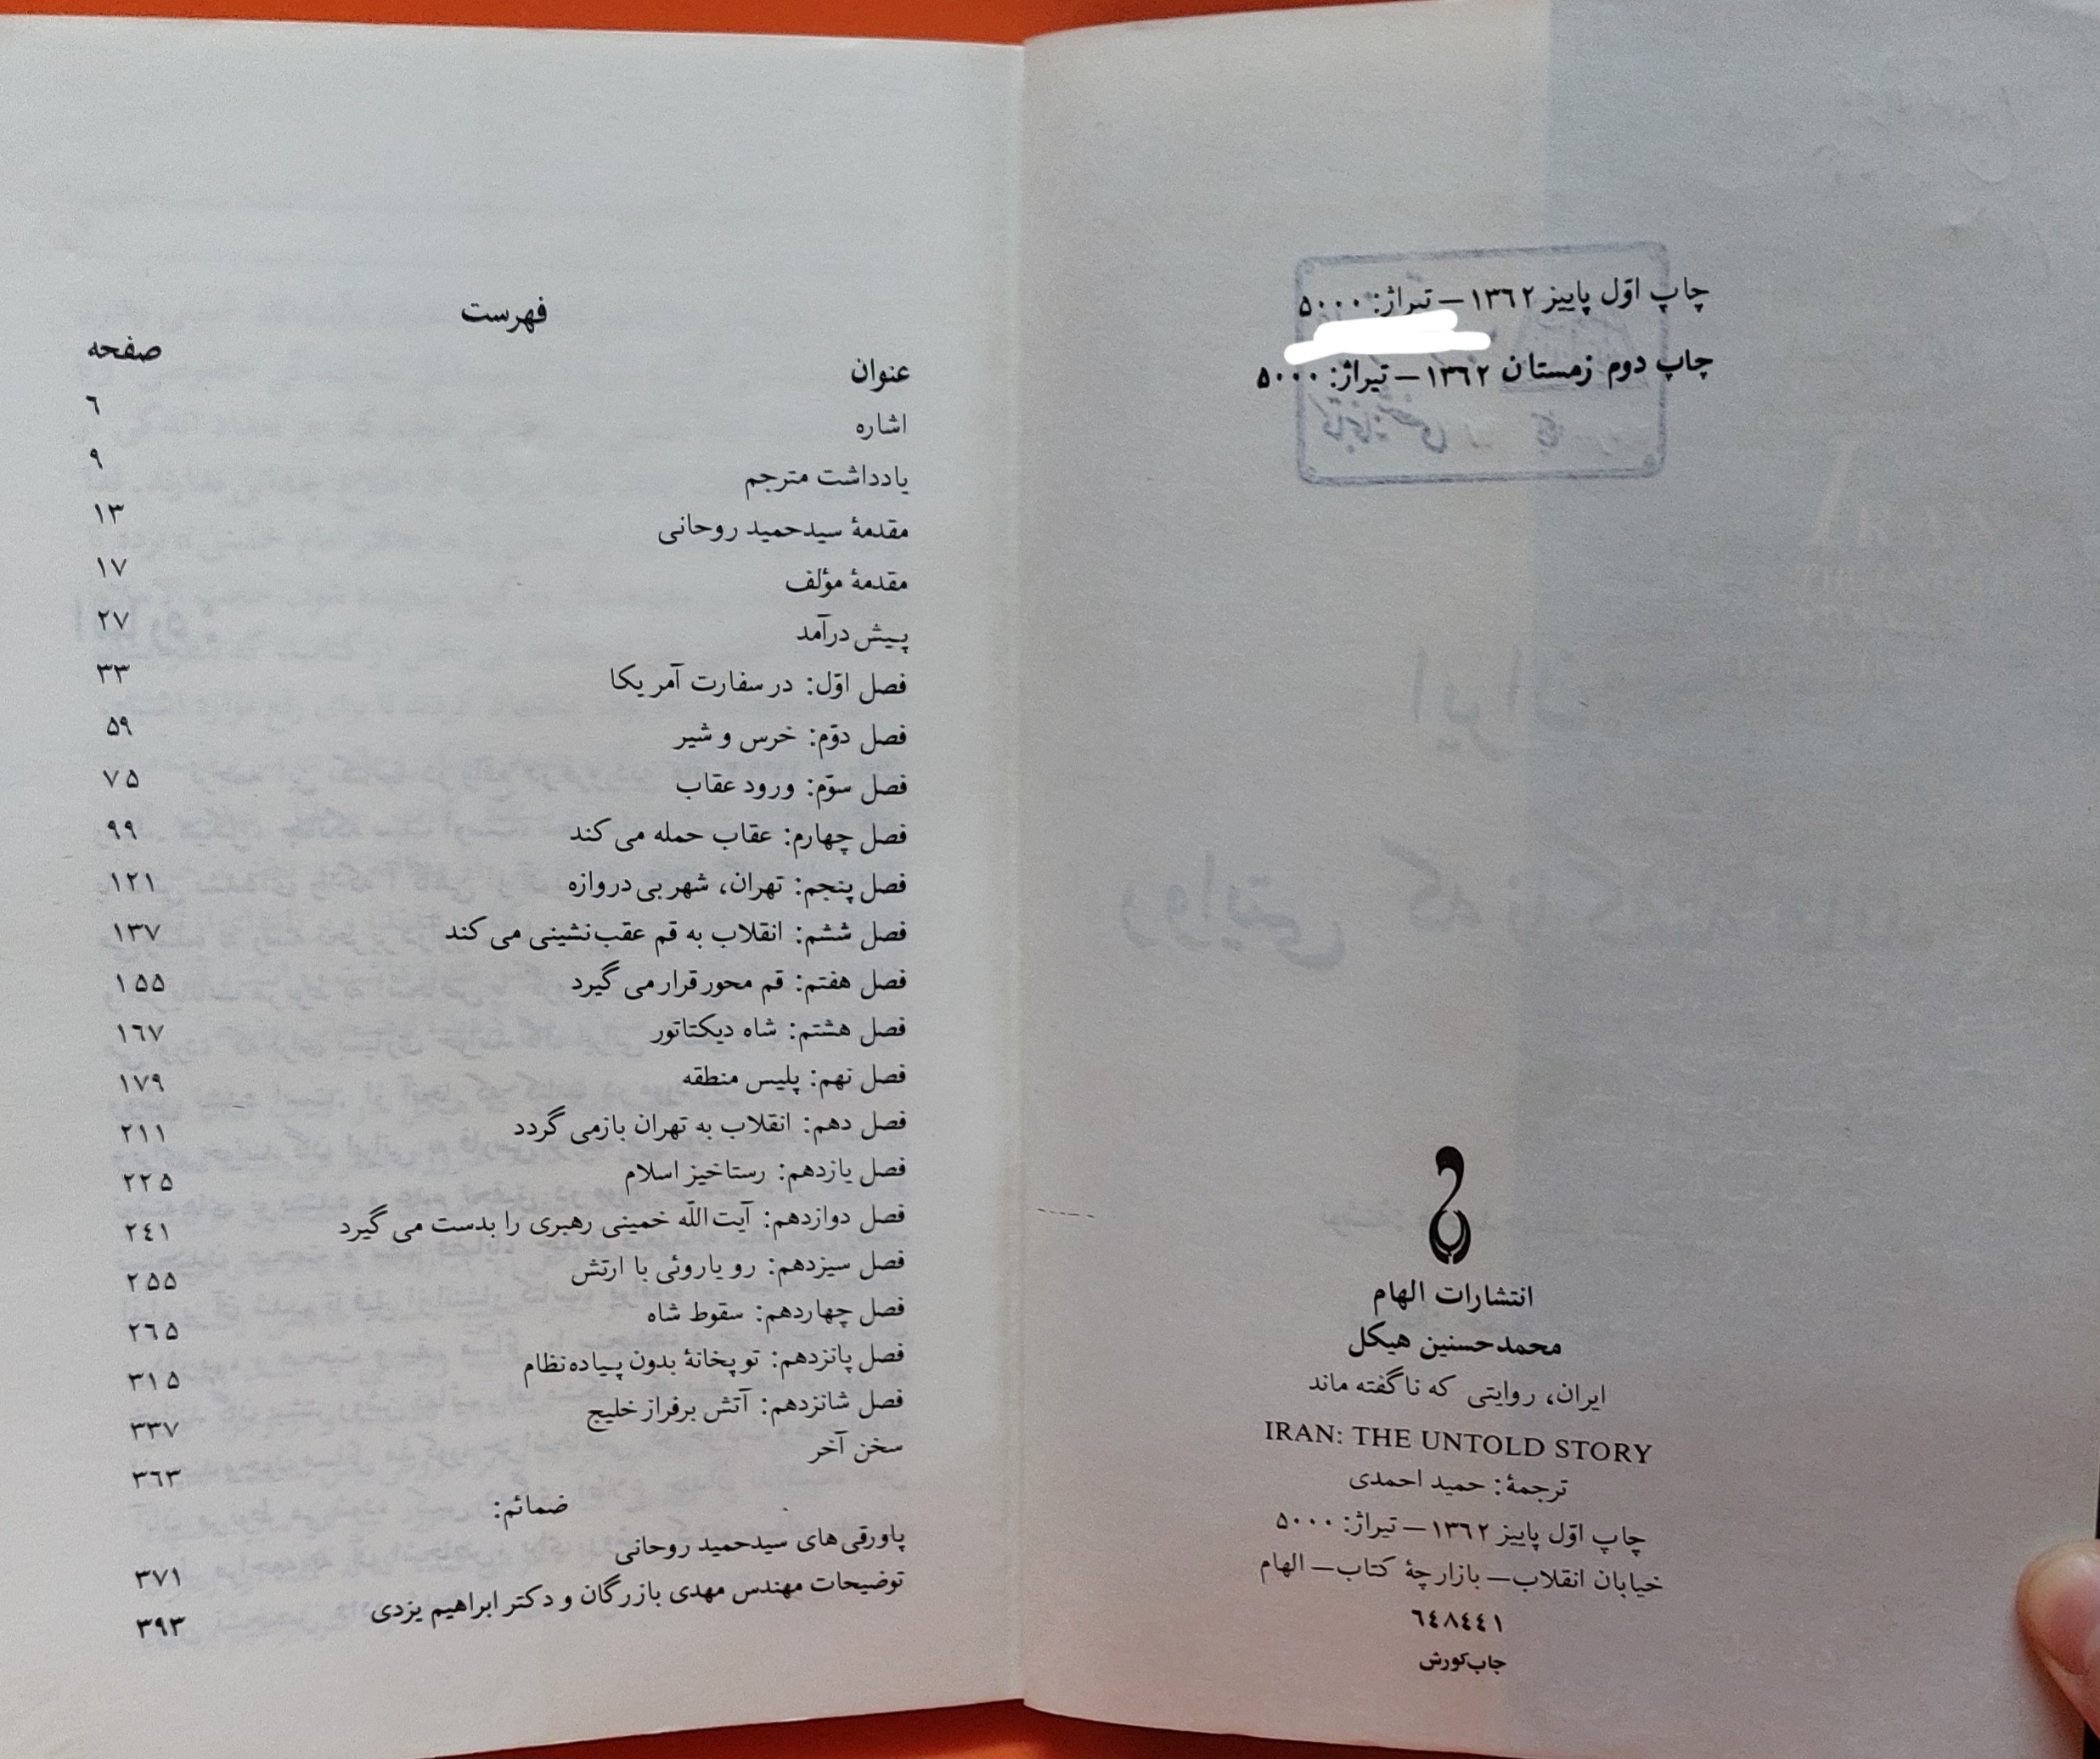 چاپ اوّل پاییز ۱۳٦۲ — تیراژ: ۵۰۰۰
چاپ دوم زمستان ۱۳٦۲ — تیراژ: ۵۰۰۰
انتشارات الهام
محمدحسنین هیکل
ایران، روایتی که ناگفته ماند
IRAN: THE UNTOLD STORY
ترجمهٔ: حمید احمدی
چاپ اوّل پاییز ۱۳٦۲ — تیراژ: ۵۰۰۰
خیابان انقلاب — بازارچهٔ کتاب — الهام
٦٤٨٤٤١
چاپ کورش
فهرست
عنوان صفحه
اشاره ٦
یادداشت مترجم ۹
مقدمهٔ سیدحمید روحانی ۱۳
مقدمهٔ مؤلف ۱۷
پیش درآمد ۲۷
فصل اوّل: در سفارت آمریکا ۳۳
فصل دوّم: خرس و شیر ۵۹
فصل سوّم: ورود عقاب ۷۵
فصل چهارم: عقاب حمله می کند ۹۹
فصل پنجم: تهران، شهر بی دروازه ۱۲۱
فصل ششم: انقلاب به قم عقب‌نشینی می کند ۱۳۷
فصل هفتم: قم محور قرار می گیرد ۱۵۵
فصل هشتم: شاه دیکتاتور ۱٦۷
فصل نهم: پلیس منطقه ۱۷۹
فصل دهم: انقلاب به تهران بازمی گردد ۲۱۱
فصل یازدهم: رستاخیز اسلام ۲۲۵
فصل دوازدهم: آیت‌اللّه خمینی رهبری را بدست می گیرد ۲٤۱
فصل سیزدهم: رویاروئی با ارتش ۲۵۵
فصل چهاردهم: سقوط شاه ۲٦۵
فصل پانزدهم: توپخانهٔ بدون پیاده‌نظام ۳۱۵
فصل شانزدهم: آتش برفراز خلیج ۳۳۷
سخن آخر ۳٦۳
ضمائم:
پاورقی‌های سیدحمید روحانی ۳۷۱
توضیحات مهندس مهدی بازرگان و دکتر ابراهیم یزدی ۳۹۳